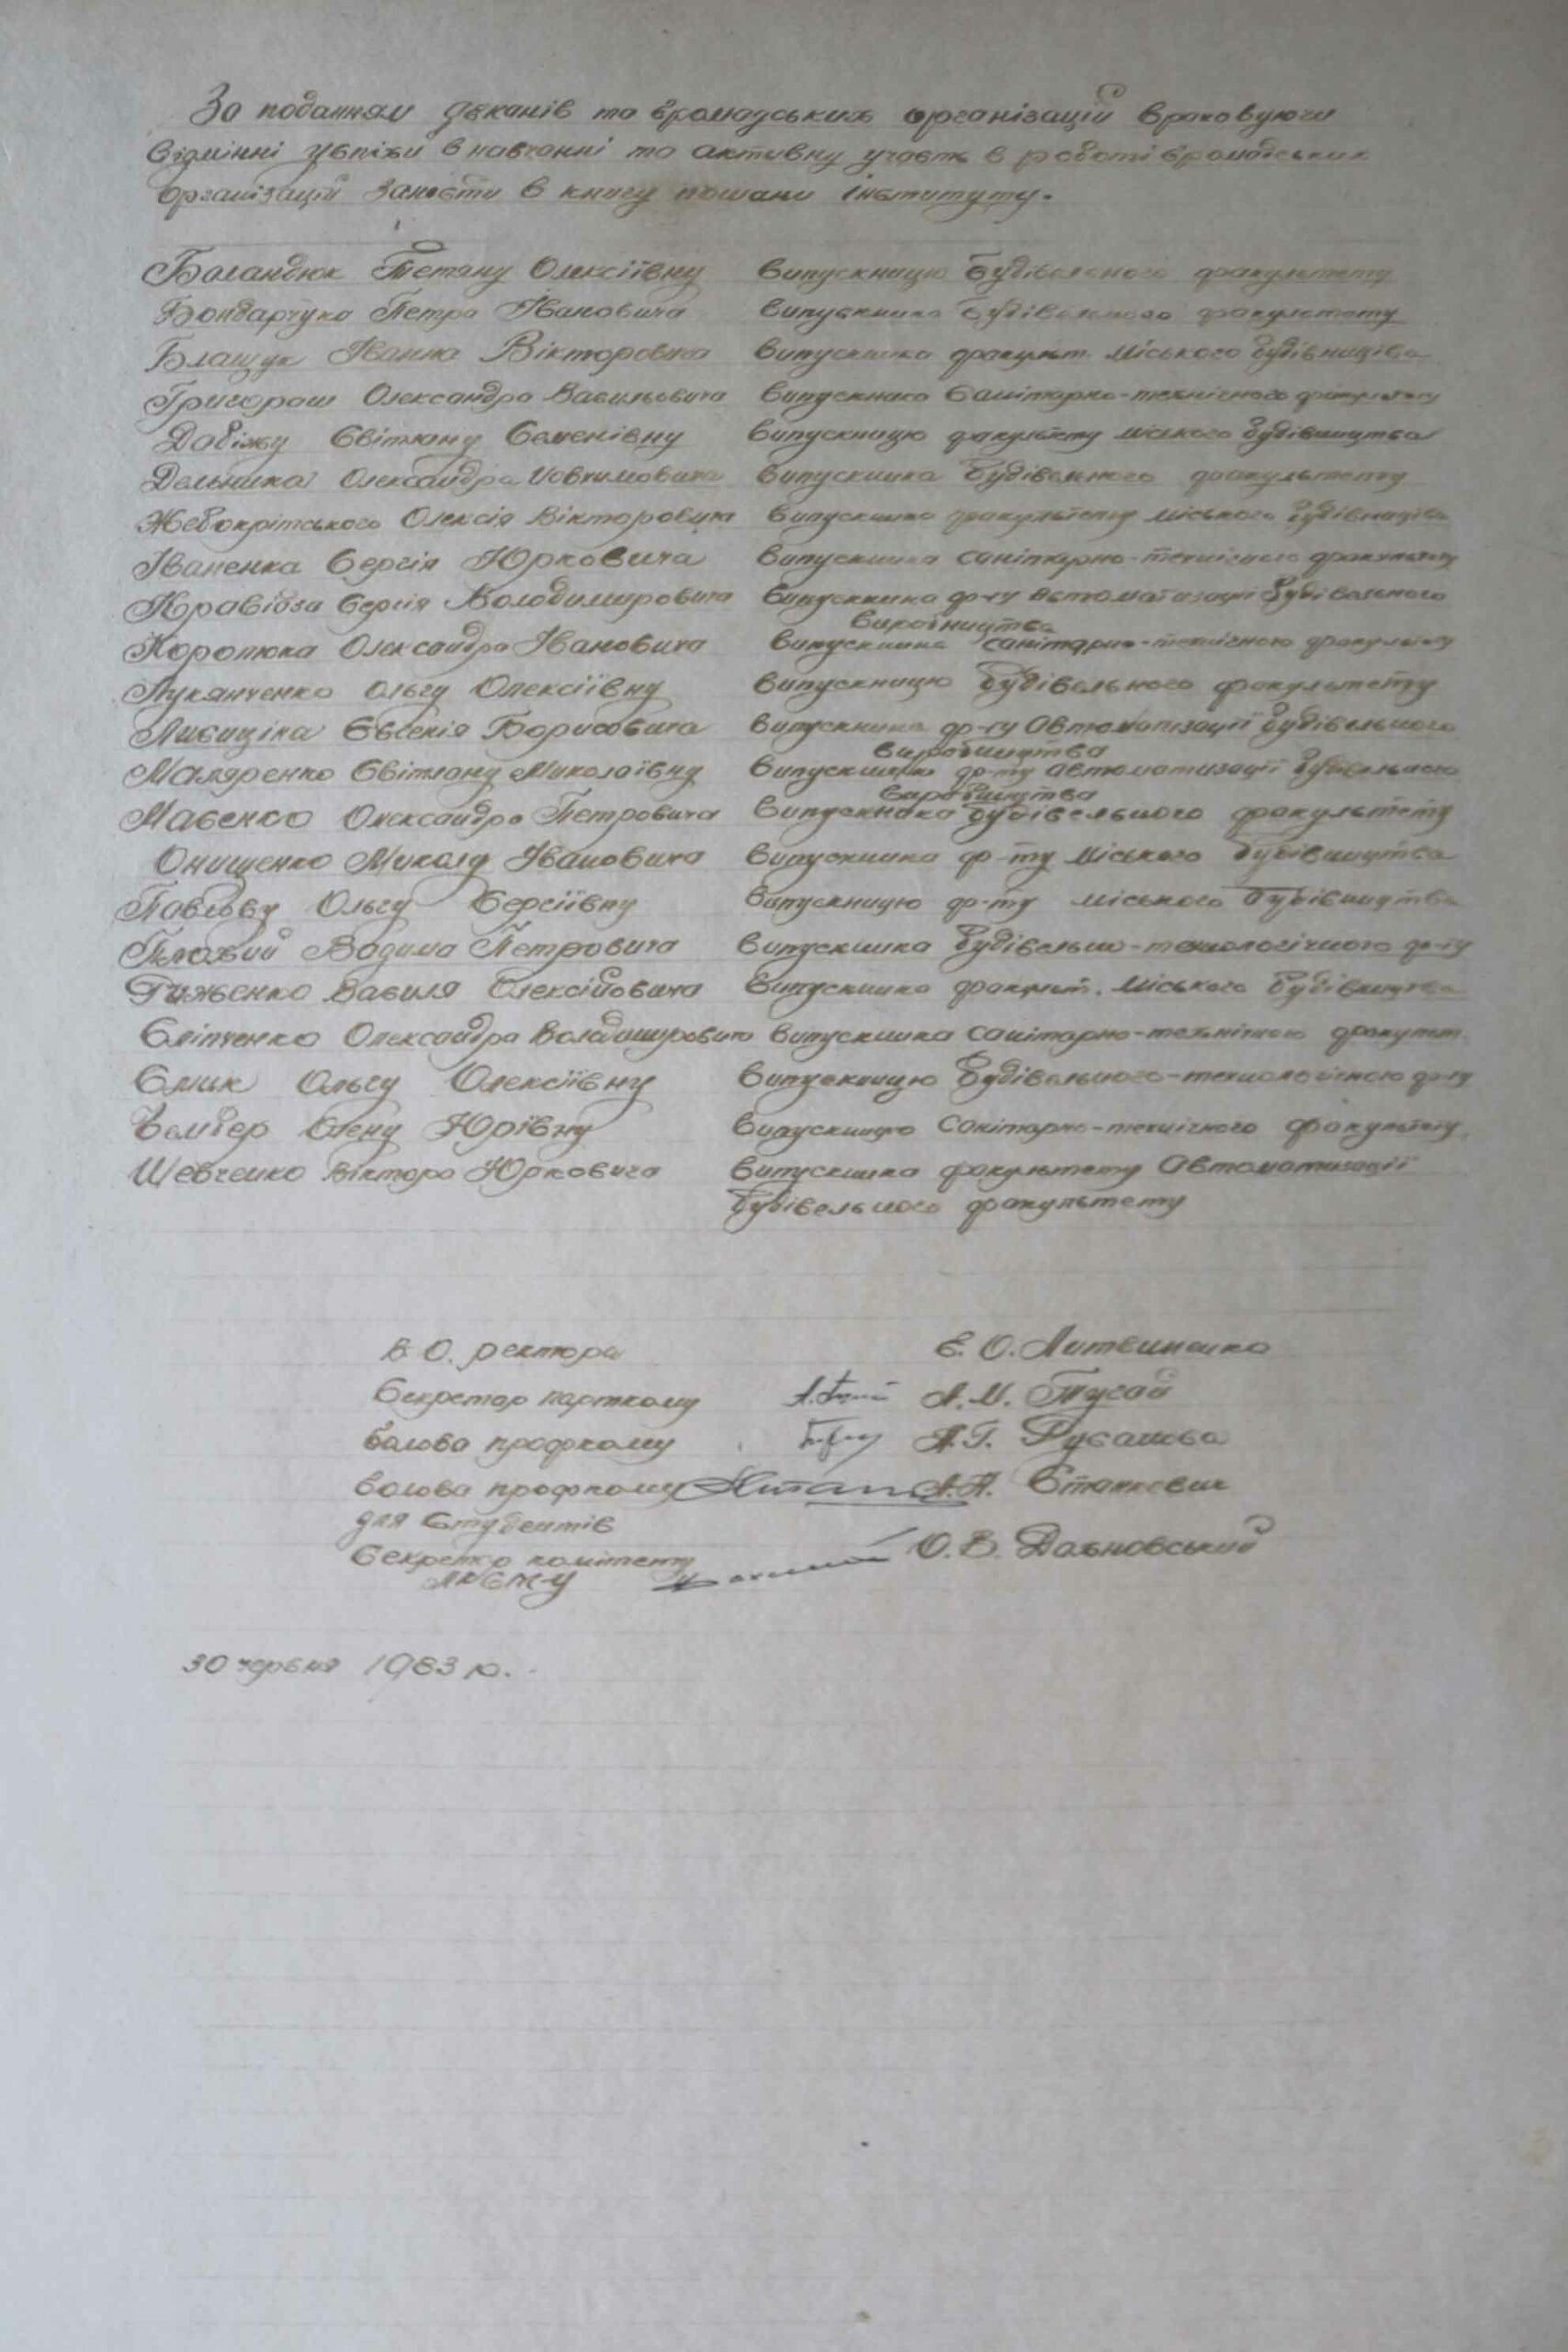 За поданням деканів та громадських організацій враховуючи
відмінні успіхи в навчанні та активну участь в роботі громадських
організацій занести в книгу пошани інституту.
Баландюк Тетяну Олексіївну випускницю будівельного факультету
Бондарчука Петра Івановича випускника будівельного факультету
Блащук Івана Вікторовича випускника факульт. міського будівництва
Григораш Олександра Васильовича випускника санітарно-технічного факультету
Дабіжу Світлану Семенівну випускницю факультету міського будівництва
Дельника Олександра випускника будівельного факультету
Жебокрітського Олексія Вікторовича випускника факультету міського будівництва
Іваненка Сергія Юрковича випускника санітарно-технічного факультету
Сергія Володимировича випускника ф-ту автоматизації будівельного
виробництва
Королюка Олександра Івановича випускника санітарно-технічного факультету
Лукянченко Ольгу Олексіївну випускницю будівельного факультету
Лисиціна Євгенія Борисовича випускника ф-ту автоматизації будівельного
виробництва
Маляренко Світлану Миколаївну випускницю ф-ту автоматизації будівельного
виробництва
Олександра Петровича випускника будівельного факультету
Онищенко Миколу Івановича випускника ф-ту міського будівництва
Павлову Ольгу Сергіївну випускницю ф-ту міського будівництва
Вадима Петровича випускника будівельно-технологічного ф-ту
Василя Олексійовича випускника факульт. міського будівництва
Сліпченко Олександра Володимировича випускника санітарно-технічного факульт.
Смик Ольгу Олексіївну випускницю будівельного-технологічного ф-ту
Чембер Олену Юріївну випускницю санітарно-технічного факультету.
Шевченко Віктора Юрковича випускника факультету автоматизації
будівельного факультету
В.О. ректора Є. О. Литвиненко
Секретар парткому А. М. Тугай
Голова профкому А. Г. Рубашова
Голова профкому А. А. Станкевич
для студентів
Секретар комітету О. В. Дахновський
ЛКСМУ
30 червня 1983 р.